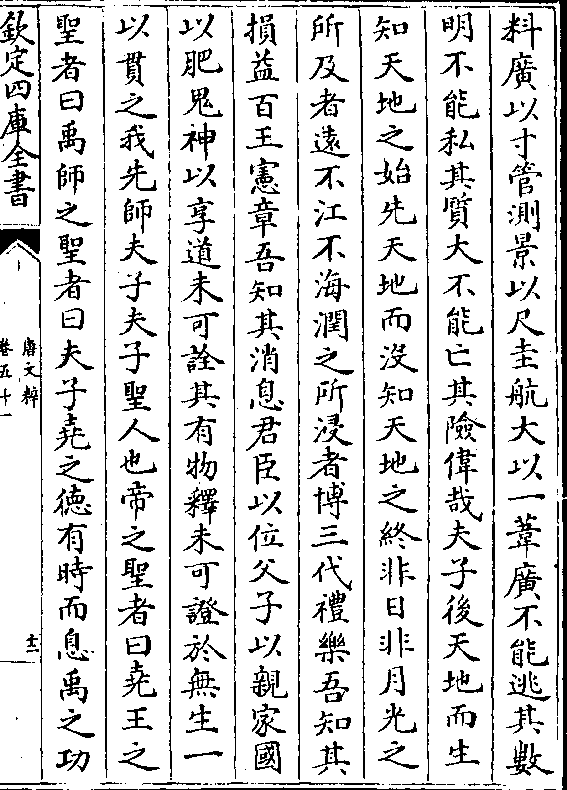 料廣以寸管測景以尺圭航大以一葦廣不能逃其數
明不能私其質大不能亡其險偉哉夫子後天地而生
知天地之始先天地而沒知天地之終非日非月光之
所及者遠不江不海潤之所浸者博三代禮樂吾知其
損益百王憲章吾知其消息君臣以位父子以親家國
以肥鬼神以享道未可詮其有物釋未可證於無生一
以貫之我先師夫子夫子聖人也帝之聖者曰堯王之
聖者曰禹師之聖者曰夫子堯之德有時而息禹之功
欽定四庫全書
唐文粹
卷五十一
十三